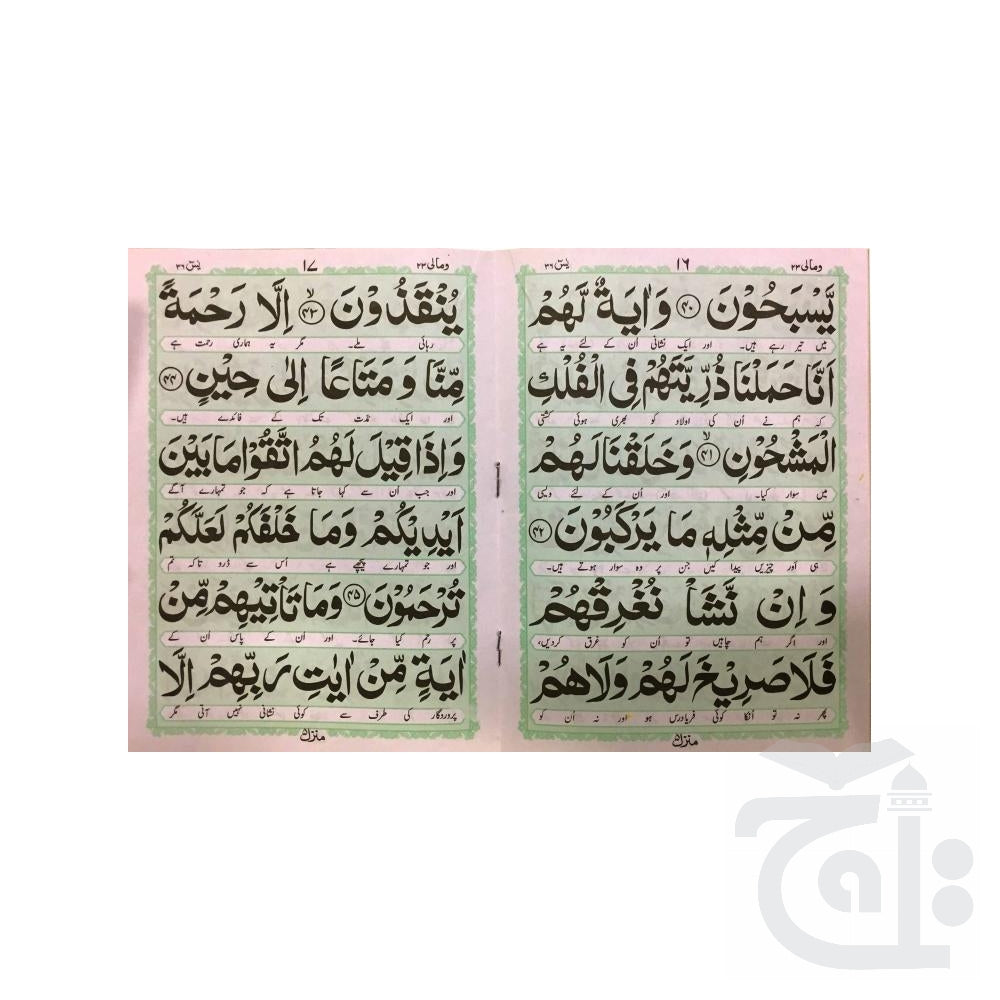 ومالی ۲۳ ۱۶ یٰسٓ ۳۶
یَّسْبَحُوْنَ ﴿۴۰﴾ وَاٰیَةٌ لَّهُمْ
میں تیر رہے ہیں۔ اور ایک نشانی اُن کے لئے یہ ہے
اَنَّا حَمَلْنَا ذُرِّیَّتَهُمْ فِی الْفُلْكِ
کہ ہم نے اُن کی اولاد کو بھری ہوئی کشتی
الْمَشْحُوْنِ ﴿۴۱﴾ۙ وَخَلَقْنَا لَهُمْ
میں سوار کیا۔ اور اُن کے لئے ویسی
مِّنْ مِّثْلِهٖ مَا یَرْكَبُوْنَ ﴿۴۲﴾
ہی اور چیزیں پیدا کیں جن پر وہ سوار ہوتے ہیں۔
وَ اِنْ نَّشَاْ نُغْرِقْهُمْ
اور اگر ہم چاہیں تو اُن کو غرق کردیں،
فَلَا صَرِیْخَ لَهُمْ وَلَا هُمْ
پھر نہ تو اُنکا کوئی فریادرس ہو اور نہ اُن کو
منزل ۵
ومالی ۲۳ ۱۷ یٰسٓ ۳۶
یُنْقَذُوْنَ ﴿۴۳﴾ۙ اِلَّا رَحْمَةً
رہائی ملے۔ مگر یہ ہماری رحمت ہے
مِّنَّا وَ مَتَاعًا اِلٰی حِیْنٍ ﴿۴۴﴾
اور ایک مدّت تک کے فائدے ہیں۔
وَاِذَا قِیْلَ لَهُمُ اتَّقُوْا مَا بَیْنَ
اور جب اُن سے کہا جاتا ہے کہ جو تمہارے آگے
اَیْدِیْكُمْ وَمَا خَلْفَكُمْ لَعَلَّكُمْ
اور جو تمہارے پیچھے ہے اُس سے ڈرو تاکہ تم
تُرْحَمُوْنَ ﴿۴۵﴾ وَمَا تَاْتِیْهِمْ مِّنْ
پر رحم کیا جائے۔ اور اُن کے پاس اُن کے
اٰیَةٍ مِّنْ اٰیٰتِ رَبِّهِمْ اِلَّا
پروردگار کی طرف سے کوئی نشانی نہیں آتی مگر
منزل ۵